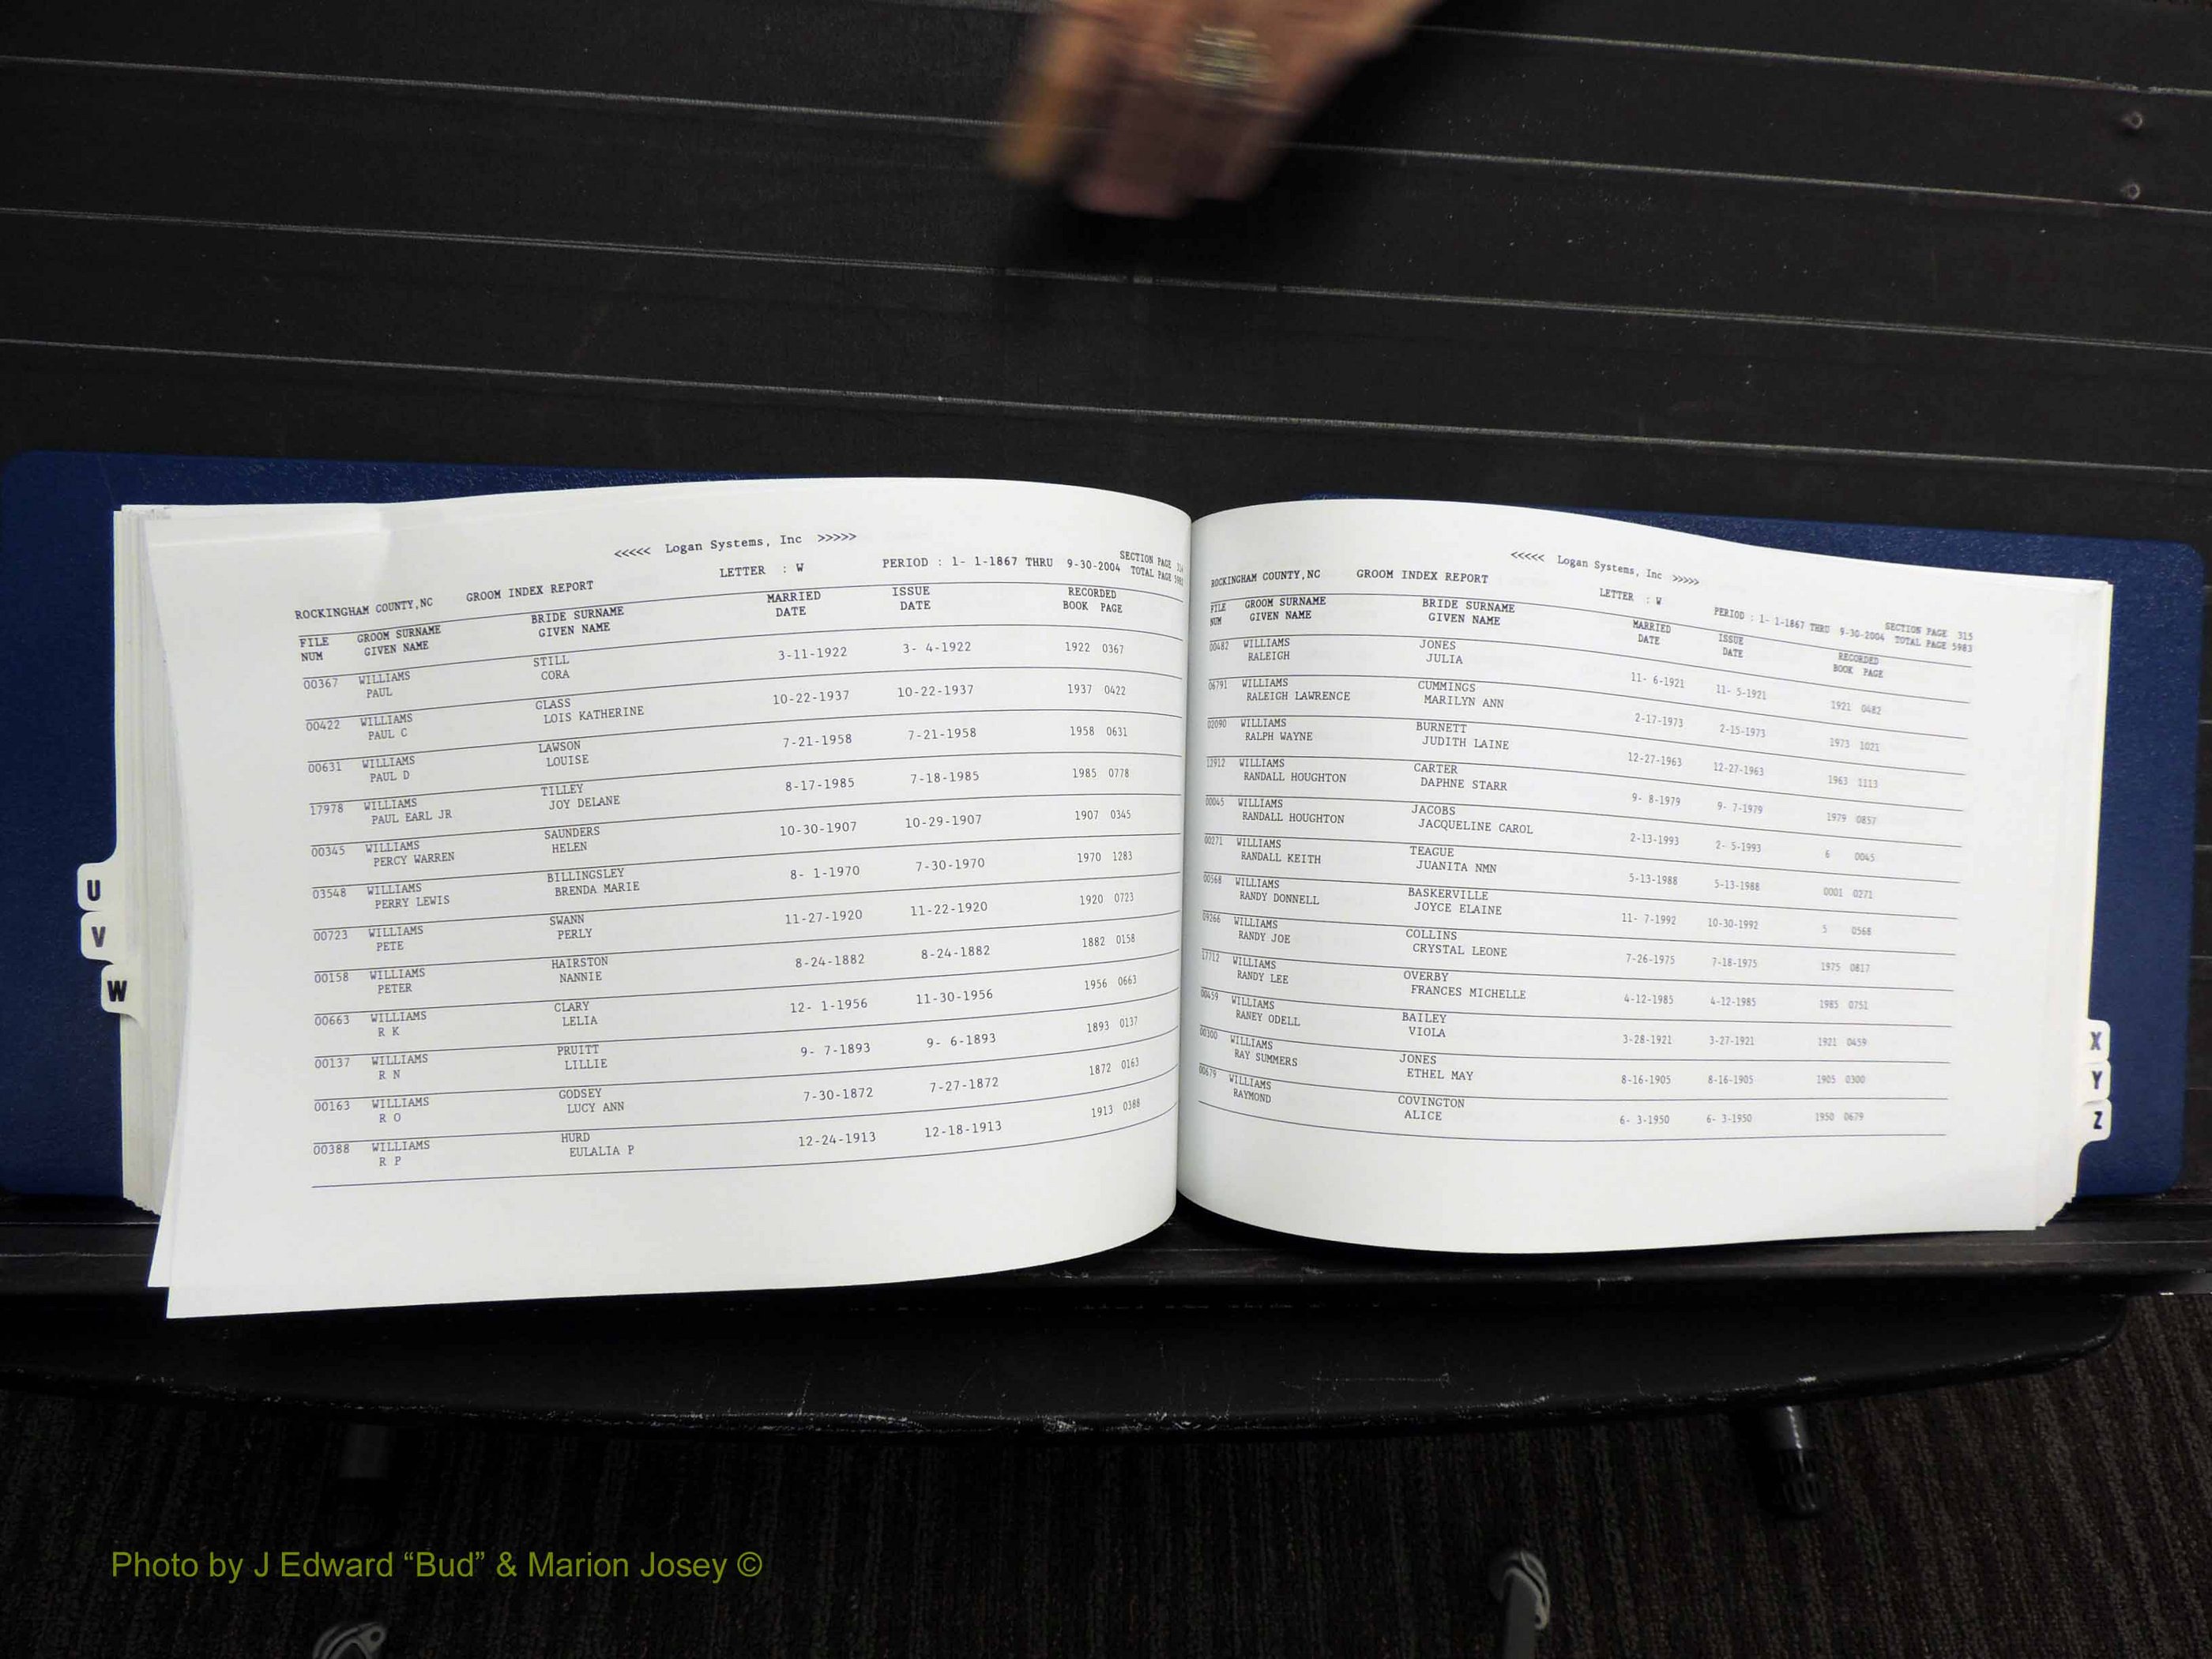 <<<<< Logan Systems, Inc >>>>>
ROCKINGHAM COUNTY,NC GROOM INDEX REPORT LETTER : W PERIOD : 1- 1-1867 THRU 9-30-2004 SECTION PAGE
TOTAL PAGE
FILE GROOM SURNAME BRIDE SURNAME MARRIED ISSUE RECORDED
NUM GIVEN NAME GIVEN NAME DATE DATE BOOK PAGE
00367 WILLIAMS STILL 3-11-1922 3- 4-1922 1922 0367
PAUL CORA
00422 WILLIAMS GLASS 10-22-1937 10-22-1937 1937 0422
PAUL C LOIS KATHERINE
00631 WILLIAMS LAWSON 7-21-1958 7-21-1958 1958 0631
PAUL D LOUISE
17978 WILLIAMS TILLEY 8-17-1985 7-18-1985 1985 0778
PAUL EARL JR JOY DELANE
00345 WILLIAMS SAUNDERS 10-30-1907 10-29-1907 1907 0345
PERCY WARREN HELEN
03548 WILLIAMS BILLINGSLEY 8- 1-1970 7-30-1970 1970 1283
PERRY LEWIS BRENDA MARIE
00723 WILLIAMS SWANN 11-27-1920 11-22-1920 1920 0723
PETE PERLY
00158 WILLIAMS HAIRSTON 8-24-1882 8-24-1882 1882 0158
PETER NANNIE
00663 WILLIAMS CLARY 12- 1-1956 11-30-1956 1956 0663
R K LELIA
00137 WILLIAMS PRUITT 9- 7-1893 9- 6-1893 1893 0137
R N LILLIE
00163 WILLIAMS GODSEY 7-30-1872 7-27-1872 1872 0163
R O LUCY ANN
00388 WILLIAMS HURD 12-24-1913 12-18-1913 1913 0388
R P EULALIA P
U
V
W
<<<<< Logan Systems, Inc >>>>>
ROCKINGHAM COUNTY,NC GROOM INDEX REPORT LETTER : W PERIOD : 1- 1-1867 THRU 9-30-2004 SECTION PAGE 315
TOTAL PAGE 5983
FILE GROOM SURNAME BRIDE SURNAME MARRIED ISSUE RECORDED
NUM GIVEN NAME GIVEN NAME DATE DATE BOOK PAGE
00482 WILLIAMS JONES 11- 6-1921 11- 5-1921 1921 0482
RALEIGH JULIA
06791 WILLIAMS CUMMINGS 2-17-1973 2-15-1973 1973 1021
RALEIGH LAWRENCE MARILYN ANN
02090 WILLIAMS BURNETT 12-27-1963 12-27-1963 1963 1113
RALPH WAYNE JUDITH LAINE
12912 WILLIAMS CARTER 9- 8-1979 9- 7-1979 1979 0857
RANDALL HOUGHTON DAPHNE STARR
00045 WILLIAMS JACOBS 2-13-1993 2- 5-1993 6 0045
RANDALL HOUGHTON JACQUELINE CAROL
00271 WILLIAMS TEAGUE 5-13-1988 5-13-1988 0001 0271
RANDALL KEITH JUANITA NMN
00568 WILLIAMS BASKERVILLE 11- 7-1992 10-30-1992 5 0568
RANDY DONNELL JOYCE ELAINE
09266 WILLIAMS COLLINS 7-26-1975 7-18-1975 1975 0817
RANDY JOE CRYSTAL LEONE
17712 WILLIAMS OVERBY 4-12-1985 4-12-1985 1985 0751
RANDY LEE FRANCES MICHELLE
00459 WILLIAMS BAILEY 3-28-1921 3-27-1921 1921 0459
RANEY ODELL VIOLA
00300 WILLIAMS JONES 8-16-1905 8-16-1905 1905 0300
RAY SUMMERS ETHEL MAY
00679 WILLIAMS COVINGTON 6- 3-1950 6- 3-1950 1950 0679
RAYMOND ALICE
X
Y
Z
Photo by J Edward “Bud” & Marion Josey ©